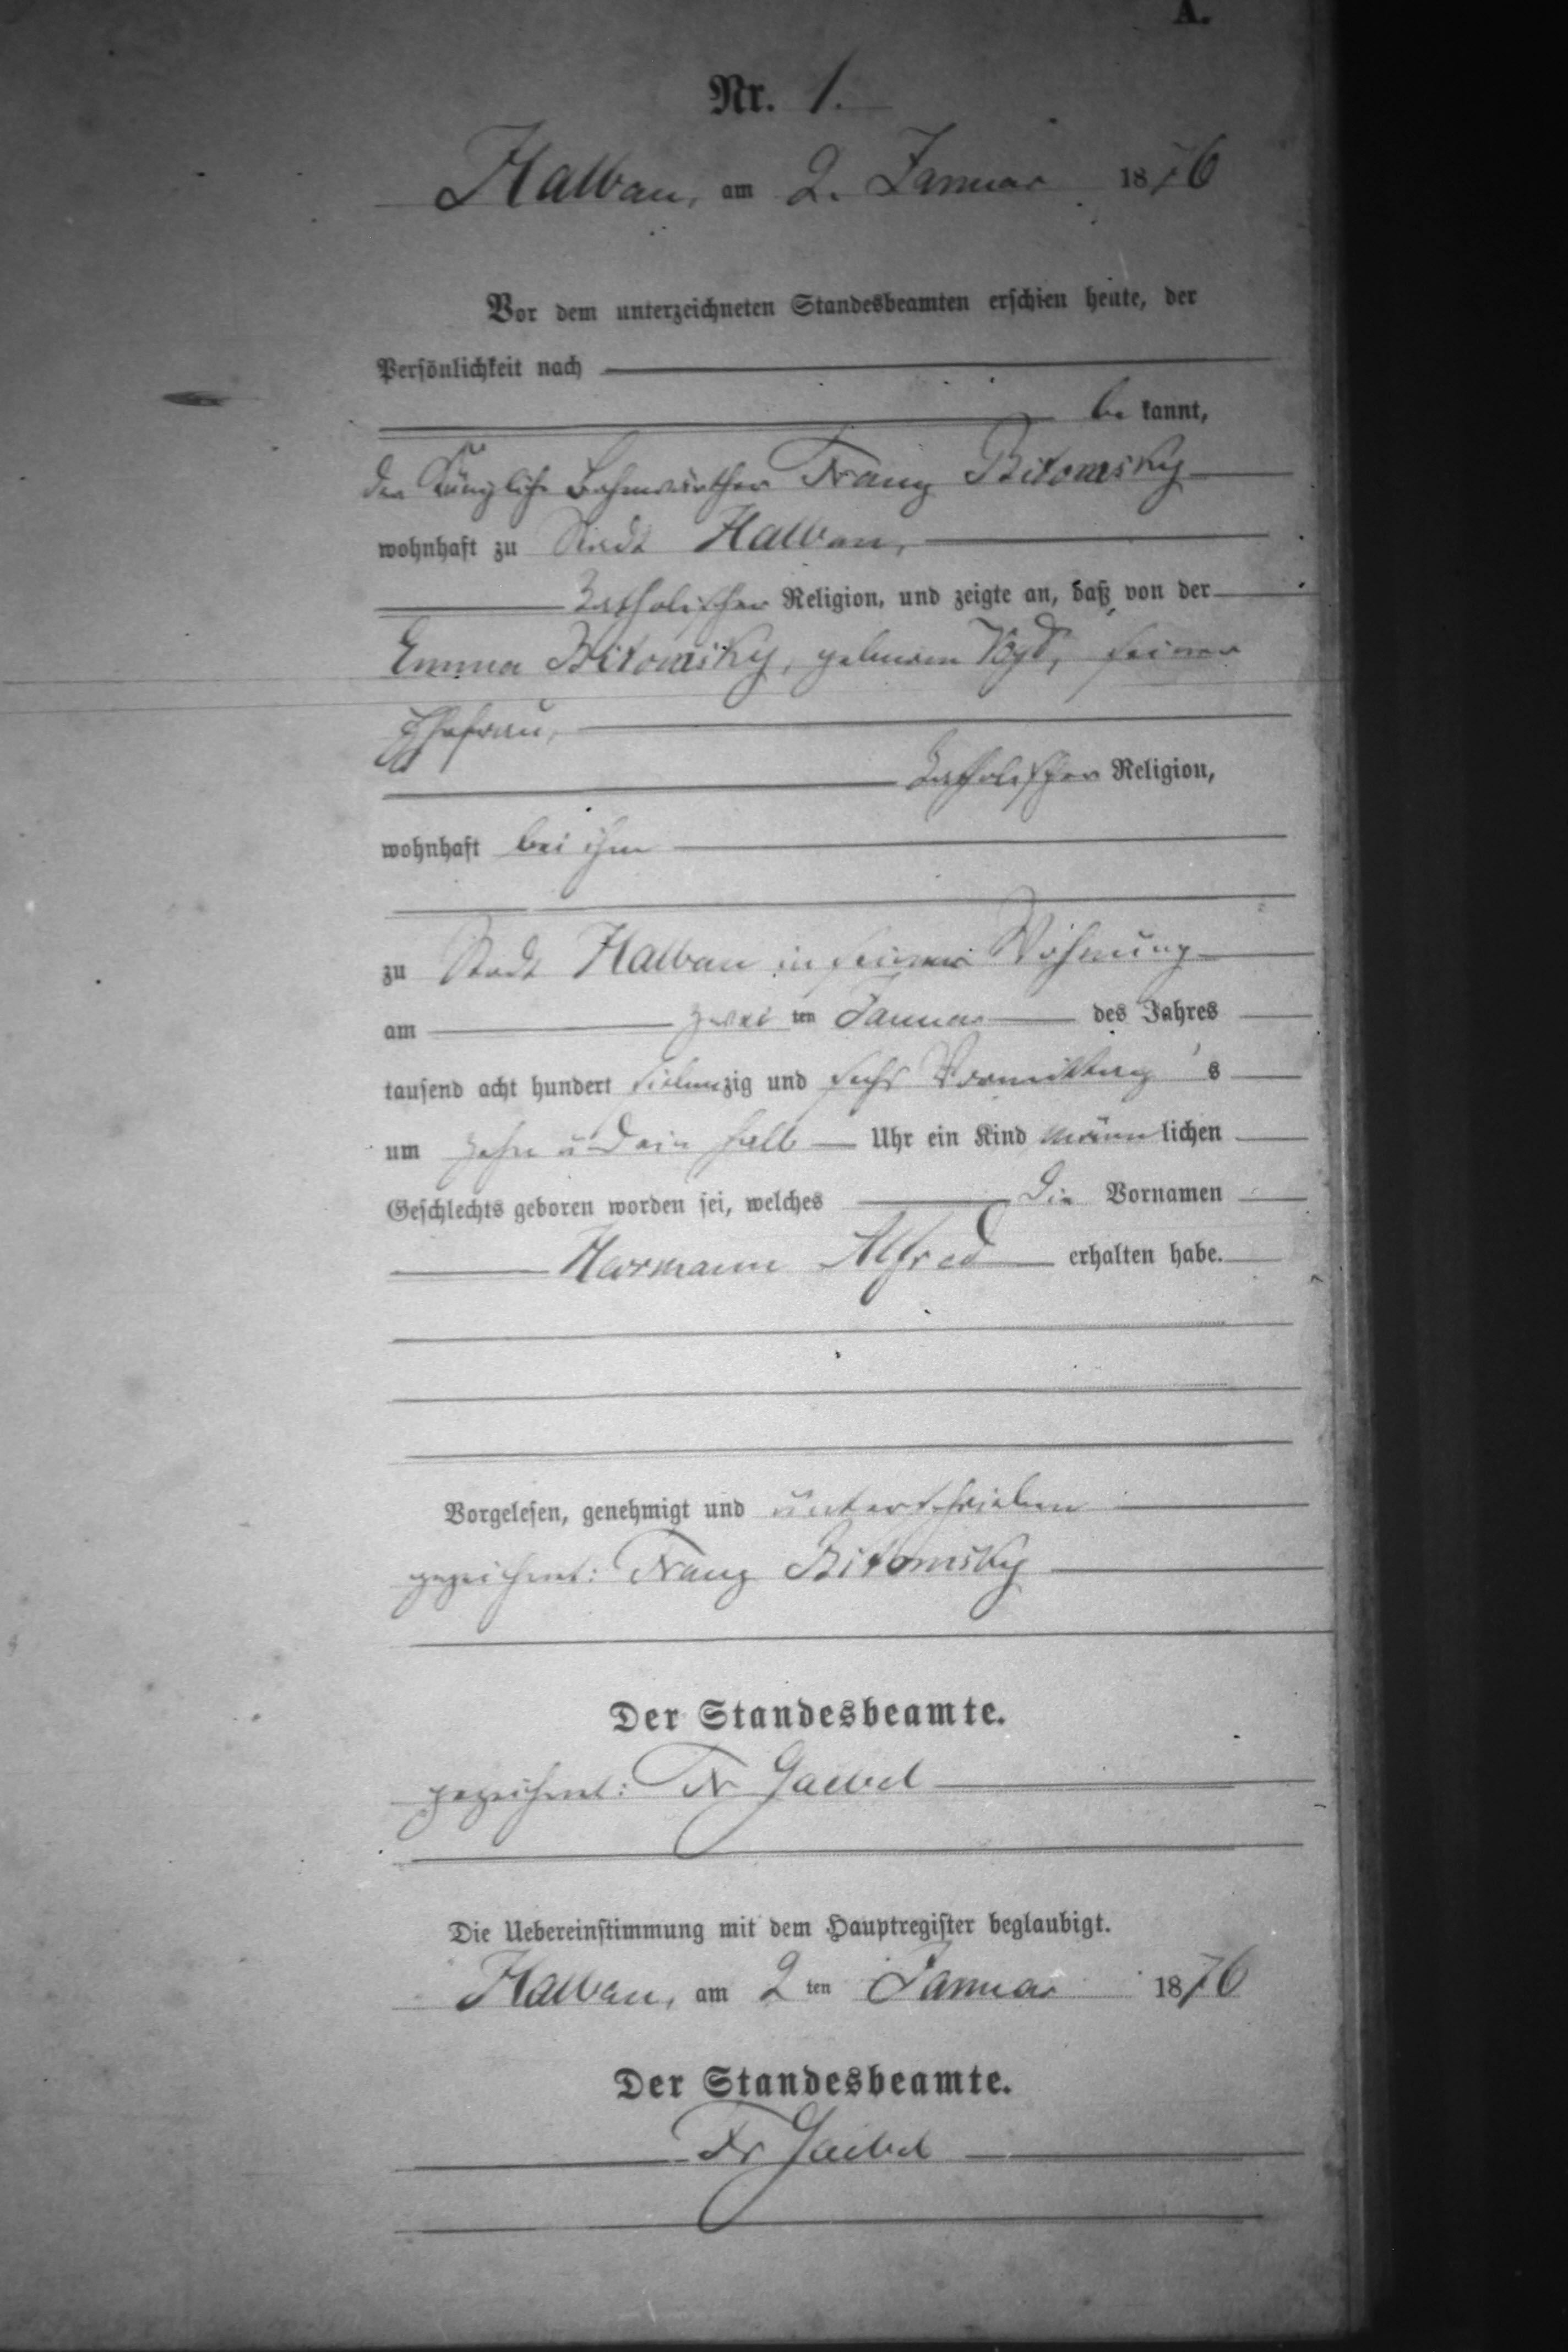 A.
Nr. 1.
Halbau, am 2. Januar 1876
Vor dem unterzeichneten Standesbeamten erschien heute, der
Persönlichkeit nach
be kannt,
der Königliche Bahnwärther Franz Bitomsky
wohnhaft zu Stadt Halbau,
katholischer Religion, und zeigte an, daß von der
Emma Bitomsky, geborene Vogt, seiner
Ehefrau,
katholischer Religion,
wohnhaft bei ihm
zu Stadt Halbau in seiner Wohnung
am zwei ten Januar des Jahres
tausend acht hundert siebenzig und sechs Vormittag s
um zehn u ein halb Uhr ein Kind männ lichen
Geschlechts geboren worden sei, welches die Vornamen
Hermann Alfred erhalten habe.
Vorgelesen, genehmigt und unterschrieben
gezeichnet: Franz Bitomsky
Der Standesbeamte.
gezeichnet: Fr Gaebel
Die Uebereinstimmung mit dem Hauptregister beglaubigt.
Halbau, am 2 ten Januar 1876
Der Standesbeamte.
Fr Gaebel